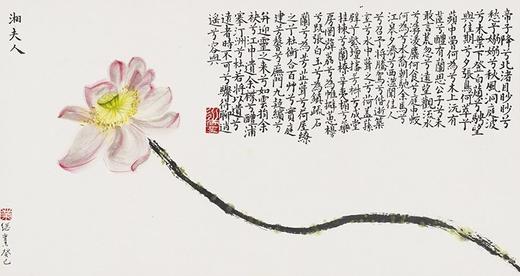 湘夫人
帝子降兮北渚目眇眇兮
愁予嫋嫋兮秋風洞庭波
兮木葉下登白薠兮騁望
與佳期兮夕張鳥何萃兮
蘋中罾何為兮木上沅有
茝兮醴有蘭思公子兮未
敢言荒忽兮遠望觀流水
兮潺湲麋何食兮庭中蛟
何為兮水裔朝馳余馬兮
江皋夕濟兮西澨聞佳人
兮召予將騰駕兮偕逝築
室兮水中葺之兮荷蓋蓀
壁兮紫壇播芳椒兮成堂
桂棟兮蘭橑辛夷楣兮藥
房罔薜荔兮為帷擗蕙櫋
兮既張白玉兮為鎮疏石
蘭兮為芳芷葺兮荷屋繚
之兮杜衡合百草兮實庭
建芳馨兮廡門九嶷繽兮
并迎靈之來兮如雲捐余
袂兮江中遺余褋兮醴浦
搴汀洲兮杜若將以遺兮
遠者時不可兮驟得聊逍
遙兮容與